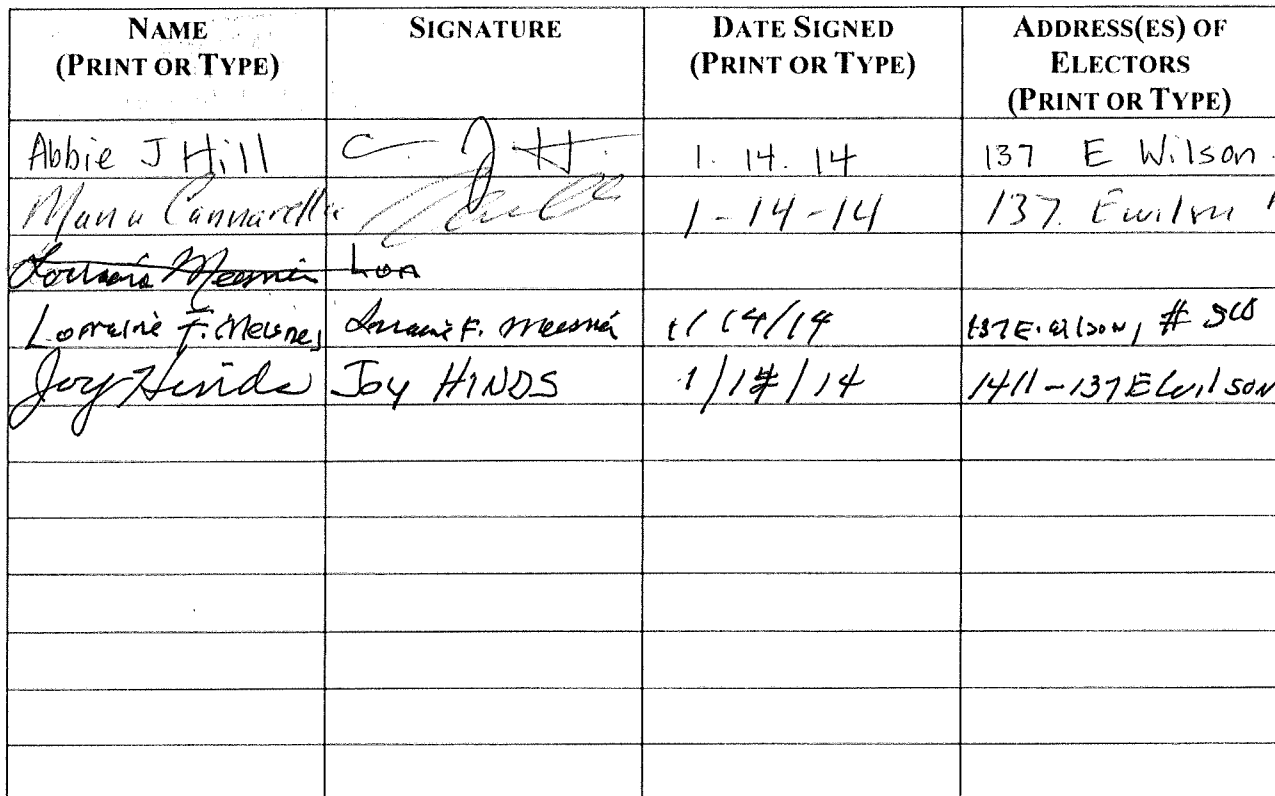 NAME (PRINT OR TYPE) SIGNATURE DATE SIGNED (PRINT OR TYPE) ADDRESS(ES) OF ELECTORS (PRINT OR TYPE)
Abbie J Hill 1. 14. 14 137 E Wilson
Cannarella 1-14-14 137 E Wilson
Lorraine
Lorraine F. Lorraine F. 1/14/14 137 E. Wilson, #
Joy Hinds Joy HINDS 1/14/14 1411-137 E Wilson